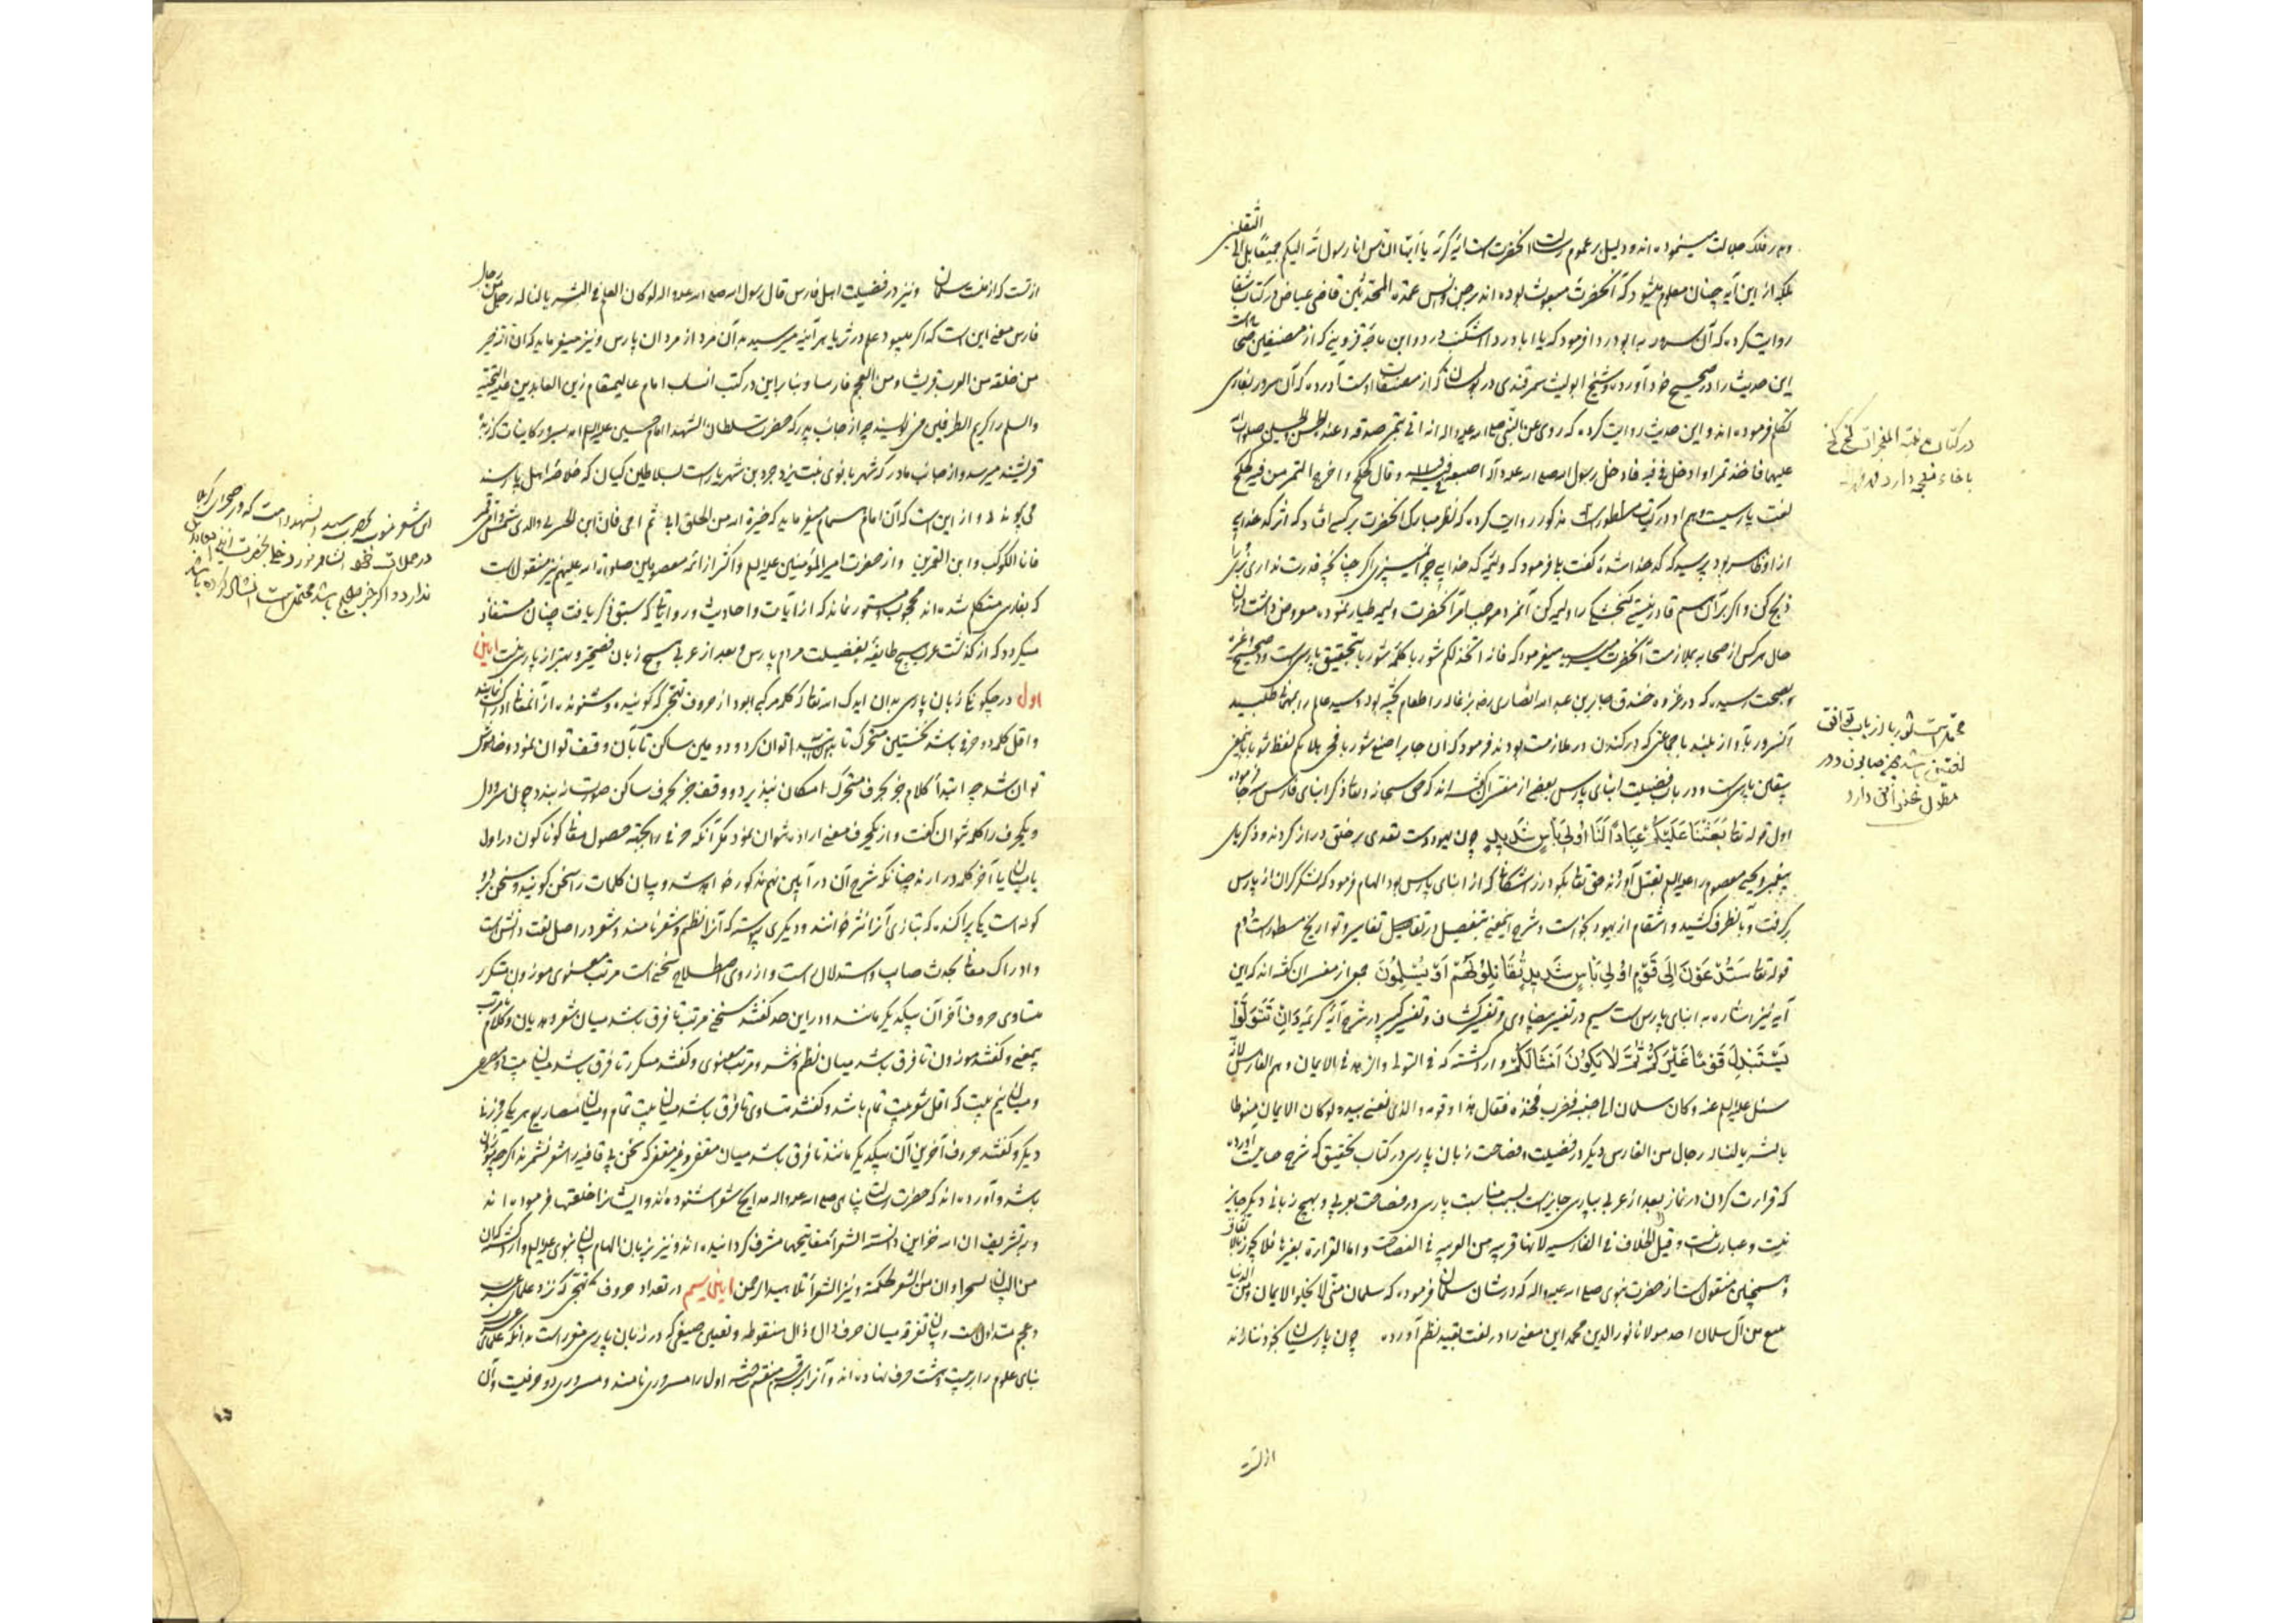 الثقلین
و بر فلک جلالت میپیموده‌اند و دلیل بر عموم رسالت آنحضرت است آیه کریمه یا ایها الناس انا رسول الله الیکم جمیعا بل الی
بلکه از این آیه چنان معلوم میشود که آنحضرت مبعوث بوده‌اند بر جن و انس عمدة المحدثین قاضی عیاض در کتاب شفا
روایت کرده که آن سرور به ابو دردا فرمود که یا ابا دردا اشکنب درد و ابن ماجه قزوینی که از مصنفین صحاح است
این حدیث را در صحیح خود آورده و شیخ ابو لیث سمرقندی در بوستان که از مصنفات اوست آورده که آن سرور بفارسی
تکلم فرموده‌اند و این حدیث روایت کرده که روی عن النبی صلی الله علیه و اله انه اتی بتمر صدقه و عنده الحسن و الحسین صلوات الله
علیهما فاخذ تمرا و ادخل فی فیه فادخل رسول الله صلی الله علیه و آله اصبعه فی فیه و قال کخ کخ و اخرج التمر من فیه کخ کخ
لغت پارسیست و هم او در کتاب مسطور مذکور روایت کرده که نظر مبارک آنحضرت بر کسی افتاد که اثر کدخدایی
از او ظاهر بود پرسید که کدخدا شده گفت بلی فرمود که ولیمه کدخدایی
ذبح کن و اگر بر آن هم قادر نیستی گنجشکی را ولیمه کن آنمرد موجب امر آنحضرت ولیمه طیار نموده معروض داشت
حال هر کس از صحابه بملازمت آنحضرت میرسید میفرمود که فانه اتخذ لکم شوربا کلمه شوربا بتحقیق پارسی است و در صحیح و غیره
بصحت رسیده که در غزوه خندق جابر بن عبد الله انصاری رض بزغاله را طعام پخته بود و سید عالم را بمهمانی طلبید
آنسرور بآواز بلند با جماعتی که در کندن در ملازمت بودند فرمود که ان جابرا صنع شوربا فحی هلا بکم لفظ شوربا
پارسی است و در باب فضیلت ابنای پارس بعضی از مفسران گفته‌اند که حق سبحانه و تعالی ذکر ابنای فارس
اول قوله تعالی بَعَثْنَا عَلَیْکُمْ عِبَادًا لَنَا أُولِی بَأْسٍ شَدِیدٍ چون یهود دست تعدی بر خلق دراز کردند و ذکریای
پیغمبر و یحیی معصوم را علیه السلام بقتل آوردند حق تعالی بگودرز اشکانی که از ابنای پارس بود الهام فرمود که لشکر گران از پارس
برگرفت و بآنطرف کشید و انتقام از یهود بخواست و شرح اینمعنی بتفصیل در تفاسیر و تواریخ مسطور است دوم
قوله تعالی سَتُدْعَوْنَ إِلَی قَوْمٍ أُولِی بَأْسٍ شَدِیدٍ تُقَاتِلُونَهُمْ أَوْ یُسْلِمُونَ جمعی از مفسران گفته‌اند که این
آیه نیز اشاره به ابنای پارس است سیم در تفسیر بیضاوی و تفسیر کشاف و تفسیر کبیر در شرح آیه کریمه وَإِنْ تَتَوَلَّوْا
یَسْتَبْدِلْ قَوْمًا غَیْرَکُمْ ثُمَّ لَا یَکُونُوا أَمْثَالَکُمْ وارد گشته که فی التولی و الزهد فی الایمان و هم الفارس لانه
سئل علیه السلام عنه و کان سلمان الی جنبه فضرب فخذه فقال هذا و قومه و الذی نفسی بیده لو کان الایمان منوطا
بالثریا لناله رجال من الفارس دیگر در فضیلت و فصاحت زبان پارسی در کتاب تحقیق که شرح حسامیست آورده
که قراءت کردن در نماز بعد از عربی بپارسی جایز است بسبب مناسبت پارسی در فصاحت بعربی و بهیچ زبانی دیگر جایز
نیست و عبارت اینست و قیل الخلاف فی الفارسیه لانها قریبه من العربیه فی الفصاحت و اما القراءة بغیرها فلا یجوز بالاتفاق
و همچنین منقول است از حضرت نبوی صلی الله علیه و اله که در شان سلمان فرموده که سلمان منی
من آل سلمان احد مولانا نور الدین محمد این معنی را در لغت بقید نظم آورده چون پارسیان بخود ننازند
ازتست
در کتاب
با خاء معجمه دارد
محتمل است شوربا از باب توافق
لغتین باشد چون صابون و در
مطول نیز دارد
ازتست که از تست سلمان و نیز در فضیلت اهل فارس قال رسول الله صلی الله علیه و اله لو کان العلم فی الثریا لناله رجال من
فارس معنی این است که اگر میبود علم در ثریا هر آینه میرسید به آن مرد از مردان پارس و نیز میفرماید که ان الله خیر
من خلقه من العرب قریشا و من العجم فارسا و بنابراین در کتب انساب امام عالیمقام زین العابدین علیه التحیة
والسلام را کریم الطرفین می‌نویسند چه از جانب پدر که حضرت سلطان الشهدا امام حسین علیه السلام اند بسرور کاینات که زبده
قریشند میرسد و از جانب مادر که شهربانوی بنت یزدجرد بن شهریار است بسلاطین کیان که خلاصه اهل پارسند
می‌پیوندد و از این است که آن امام همام میفرماید که خیرة الله من الخلق ابی ثم امی فانا ابن الخیرتین والدی شمس و امی قمر
فانا الکوکب و ابن القمرین و از حضرت امیر المؤمنین علیه السلام و اکثر از ائمه معصومین صلوات الله علیهم نیز منقول است
که بفارسی متکلم شده‌اند محجوب و مستور نماند که از آیات و احادیث و روایاتی که سبق ذکر یافت چنان مستفاد
میگردد که از گذشت عرب هیچ طایفه بفضیلت مردم پارس و بعد از عربی هیچ زبان فصیحتر و بهتر از پارسی نیست آیین
اول در چگونگی زبان پارسی بدان ایدک الله تعالی که کلمه مرکبی بود از حروف تهجی که گوینده و شنونده از آن معنی ادراک نمایند
و اقل کلمه دو حرفی باشد نخستین متحرک تا بدان ابتدا توان کرد و دومین ساکن تا بآن وقف توان نمود و خاموش
توان شد چه ابتدا کلام جز بحرف متحرک امکان نپذیرد و وقف جز بحرف ساکن صورت نبندد چون سر و دل
و یکحرف را کلمه نتوان گفت و از یکحرف معنی اراده نتوان نمود مگر آنکه حرفی را بجهت حصول معانی گوناگون در اول
یا میان یا آخر کلمه درارند چنانکه شرح آن در آیین نهم مذکور خواهد شد و پسان کلمات را سخن گویند و سخن بر دو
گونه است یکی پراکنده که بتازی آنرا نثر خوانند و دیگری پیوسته که آنرا نظم و شعر نامند و شعر در اصل لغت دانش است
و ادراک معانی بحدث صایب و استدلال است و از روی اصطلاح سخنی است مرتب معنوی موزون متکرر
متساوی حروف آخر آن بیکدیگر مانند و در این حد گفتند سخنی مرتب تا فرق باشد میان شعر و هذیان و کلام نامرتب
بیمعنی و گفتند موزون تا فرق باشد میان نظم و نثر و مرتب معنوی و گفتند متکرر تا فرق باشد میان بیت و مصرع
و میان نیم بیت که اقل شعر بیت تمام باشد و گفتند متساوی تا فرق باشد میان بیت تمام و میان مصاریع هر یک بر وزنی
دیگر و گفتند حروف آخرین آن بیکدیگر مانند تا فرق باشد میان مقفی و غیر مقفی که سخن بی قافیه را شعر نشمرند اگرچه موزون
باشد و آورده‌اند که حضرت رسالت پناهی صلی الله علیه و اله مدایح شعرا شنوده‌اند و ایشانرا خلعتها فرموده‌اند
و به تشریف ان لله خزاین و السنة الشعراء مفاتیحها مشرف گردانیده‌اند و نیز بزبان الهام بیان نبوی علیه السلام وارد گشته که ان
من البیان لسحرا و ان من الشعر لحکمة و نیز الشعراء تلامید الرحمن آیین سیم در تعداد حروف تهجی که نزد علمای عرب
و عجم متداول است و بیان تفرقه میان حرف دال و ذال منقوطه و تعیین صیغی که در زبان پارسی مقرر است بدانکه علمای عرب
بنای علوم را بر بیست و هشت حرف نهاده‌اند و آنرا بر سه قسم منقسم ساخته اول را مسروری نامند و مسروری دو حرفیست و آن
این شعر منسوب بحضرت سید الشهدا است که در صحرای کربلا